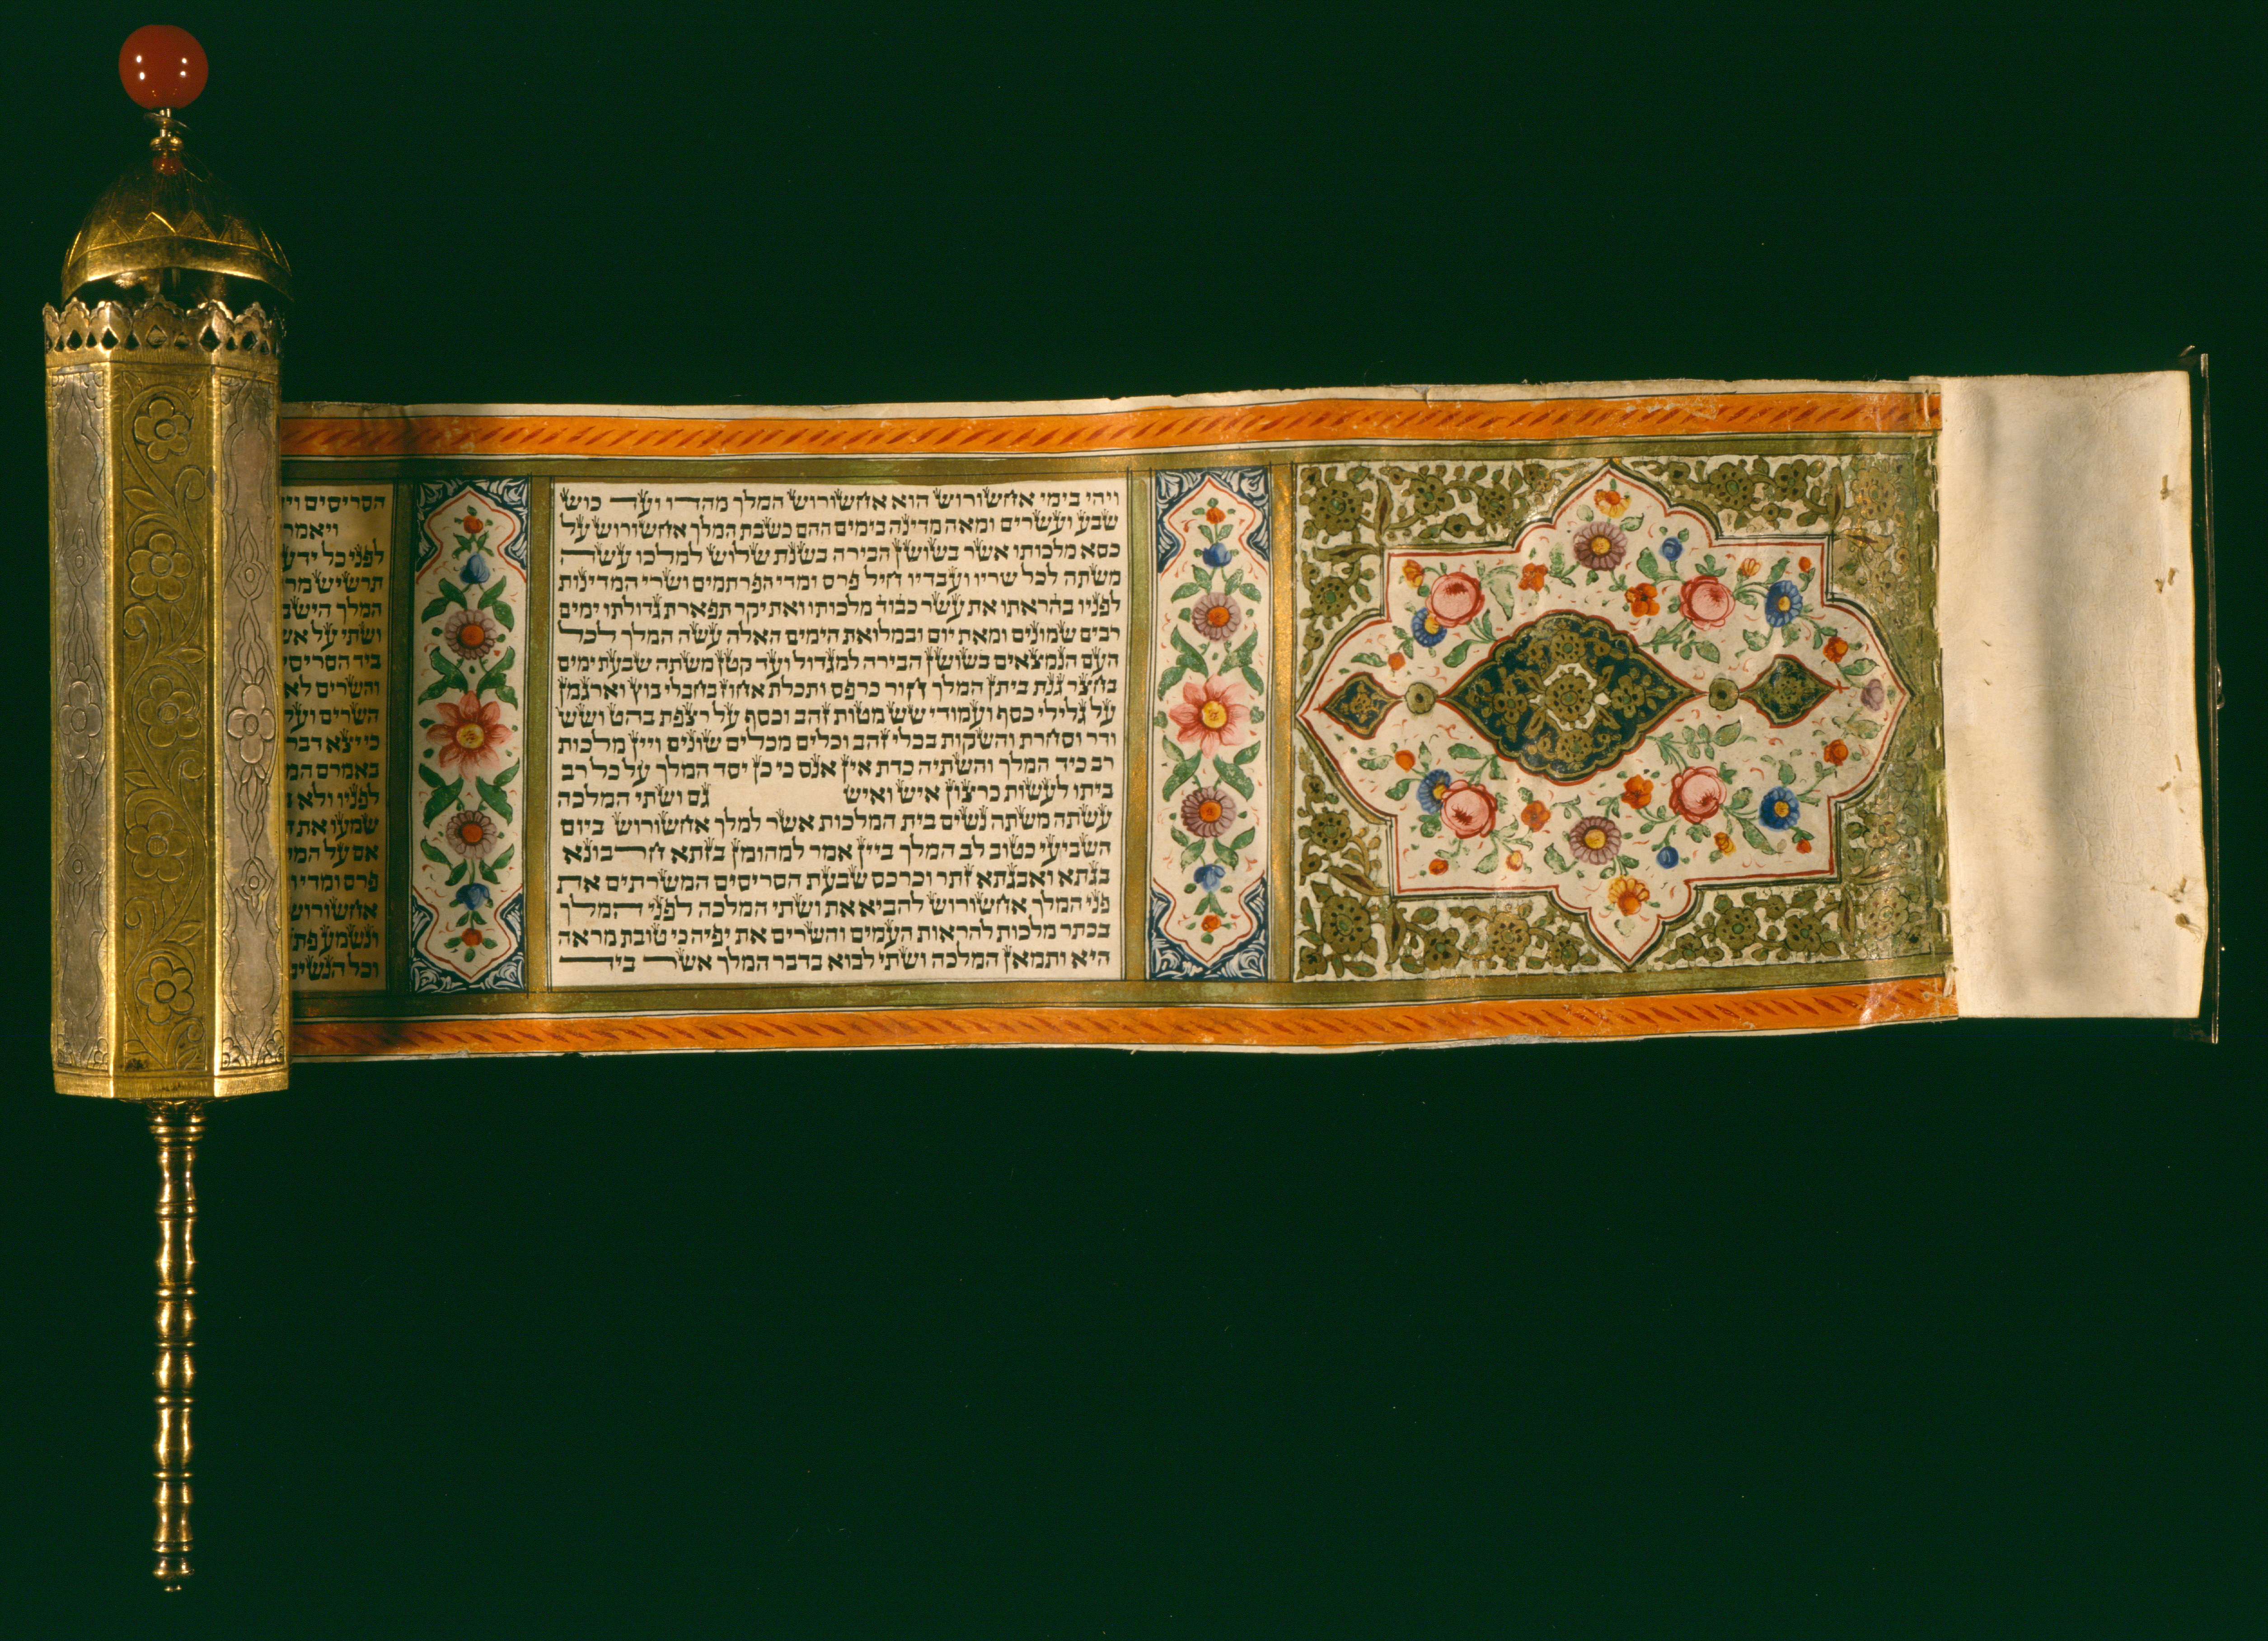 ויהי בימי אחשורוש הוא אחשורוש המלך מהדו ועד כוש
שבע ועשרים ומאה מדינה בימים ההם כשבת המלך אחשורוש על
כסא מלכותו אשר בשושן הבירה בשנת שלוש למלכו עשה
משתה לכל שריו ועבדיו חיל פרס ומדי הפרתמים ושרי המדינות
לפניו בהראתו את עשר כבוד מלכותו ואת יקר תפארת גדולתו ימים
רבים שמונים ומאת יום ובמלואת הימים האלה עשה המלך לכל
העם הנמצאים בשושן הבירה למגדול ועד קטן משתה שבעת ימים
בחצר גנת ביתן המלך חור כרפס ותכלת אחוז בחבלי בוץ וארגמן
על גלילי כסף ועמודי שש מטות זהב וכסף על רצפת בהט ושש
ודר וסחרת והשקות בכלי זהב וכלים מכלים שונים ויין מלכות
רב כיד המלך והשתיה כדת אין אנס כי כן יסד המלך על כל רב
ביתו לעשות כרצון איש ואיש גם ושתי המלכה
עשתה משתה נשים בית המלכות אשר למלך אחשורוש ביום
השביעי כטוב לב המלך ביין אמר למהומן בזתא חרבונא
בגתא ואבגתא זתר וכרכס שבעת הסריסים המשרתים את
פני המלך אחשורוש להביא את ושתי המלכה לפני המלך
בכתר מלכות להראות העמים והשרים את יפיה כי טובת מראה
היא ותמאן המלכה ושתי לבוא בדבר המלך אשר ביד
הסריסים
ויאמר
לפני כל
תרשיש
המלך
ושתי על
ביד
והשרים לא
השרים
כי יצא דבר
באמרם
לפניו ולא
שמעו את
אם על
פרס
אחשורוש
ונשמע
וכל